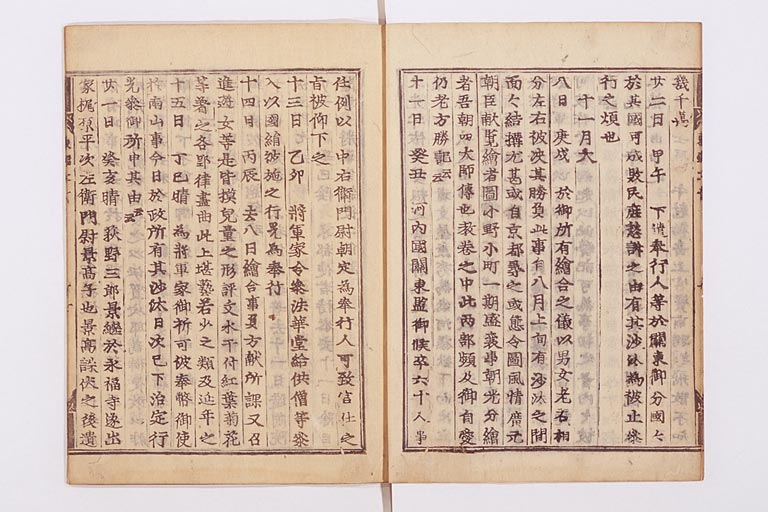 幾千萬
廿二日 甲午 下遣奉行人等於關東御分國々
於其國可成敗民庶愁訴之由有其沙汰為被止參
行之煩也
十一月大
八日 庚戌 於御所有繪合之儀以男女老若相
分左右被決其勝負此事自八月上旬有沙汰之間
面々結搆尤甚或自京都尋之或態令圖風情廣元
朝臣献覧繪者圖小野小町一期盛衰事朝光分繪
者吾朝四大師傳也数卷之中此兩部頗及御自愛
仍老方勝訖云々
十一日 癸丑 河内國關東監御候卒六十人事
任例以中右衛門尉朝定為奉行人可致官仕之
旨被仰下之
十三日 乙卯 將軍家令參法華堂給供僧等參
入以國繪被施之行晃為奉行
十四日 丙辰 去八日繪合事負方献所課又召
進遊女等是皆摸兒童之形評文水干付紅葉菊花
等著之各郢律盡曲此上堪藝若少之類及延年之
十五日 丁巳晴 為將軍家御祈可被奉幣御使
於南山事今日於政所有其沙汰日次已下治定行
光參御所申其由云云
廿一日 癸亥晴 荻野三郎景繼於永福寺逐出
家梶原平次左衛門尉景高子也景高誅伐之後漬